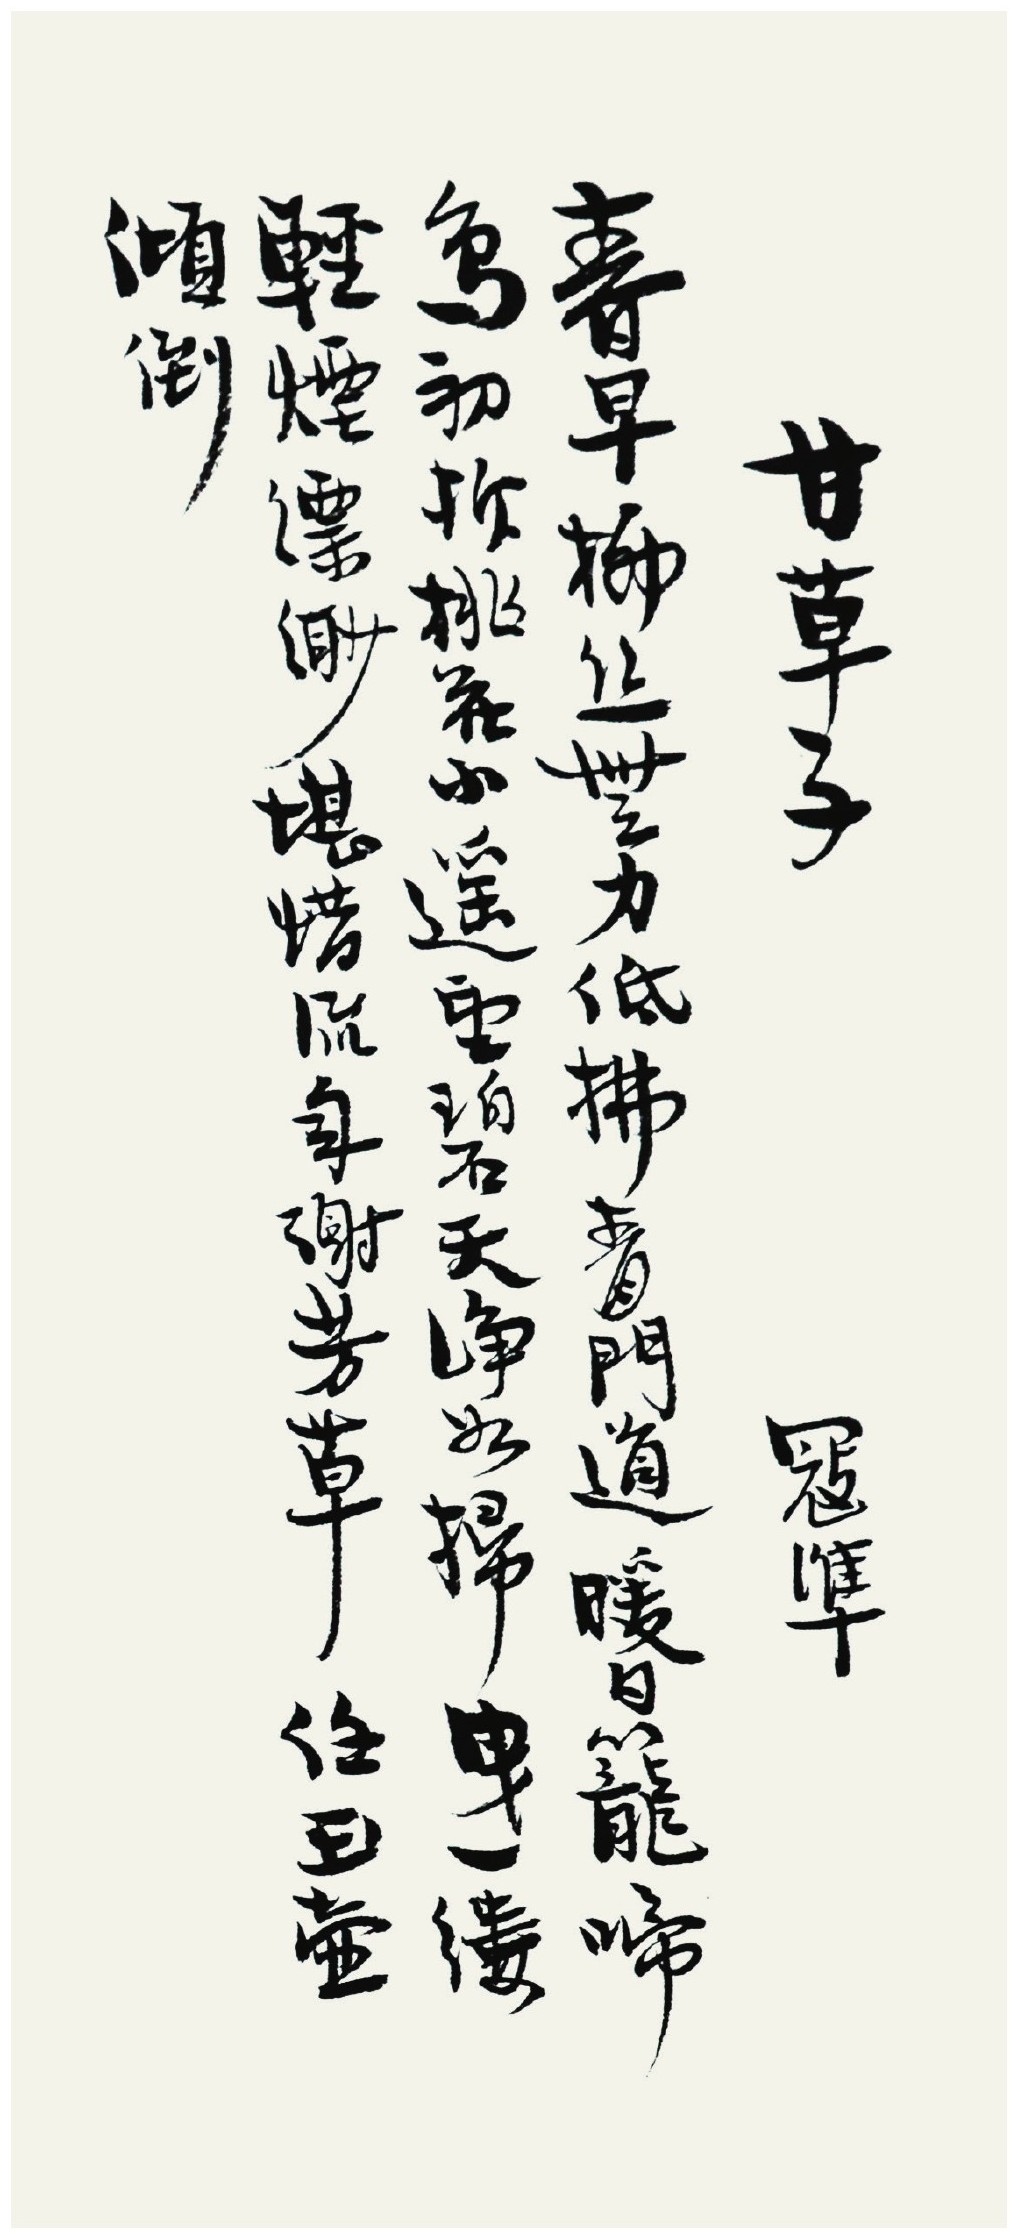 甘草子 寇準
春早柳丝無力低拂青門道暖日籠啼
鸟初拆桃花小遥望碧天净如掃曳一缕
輕煙缥缈堪惜流年谢芳草任玉壶
傾倒